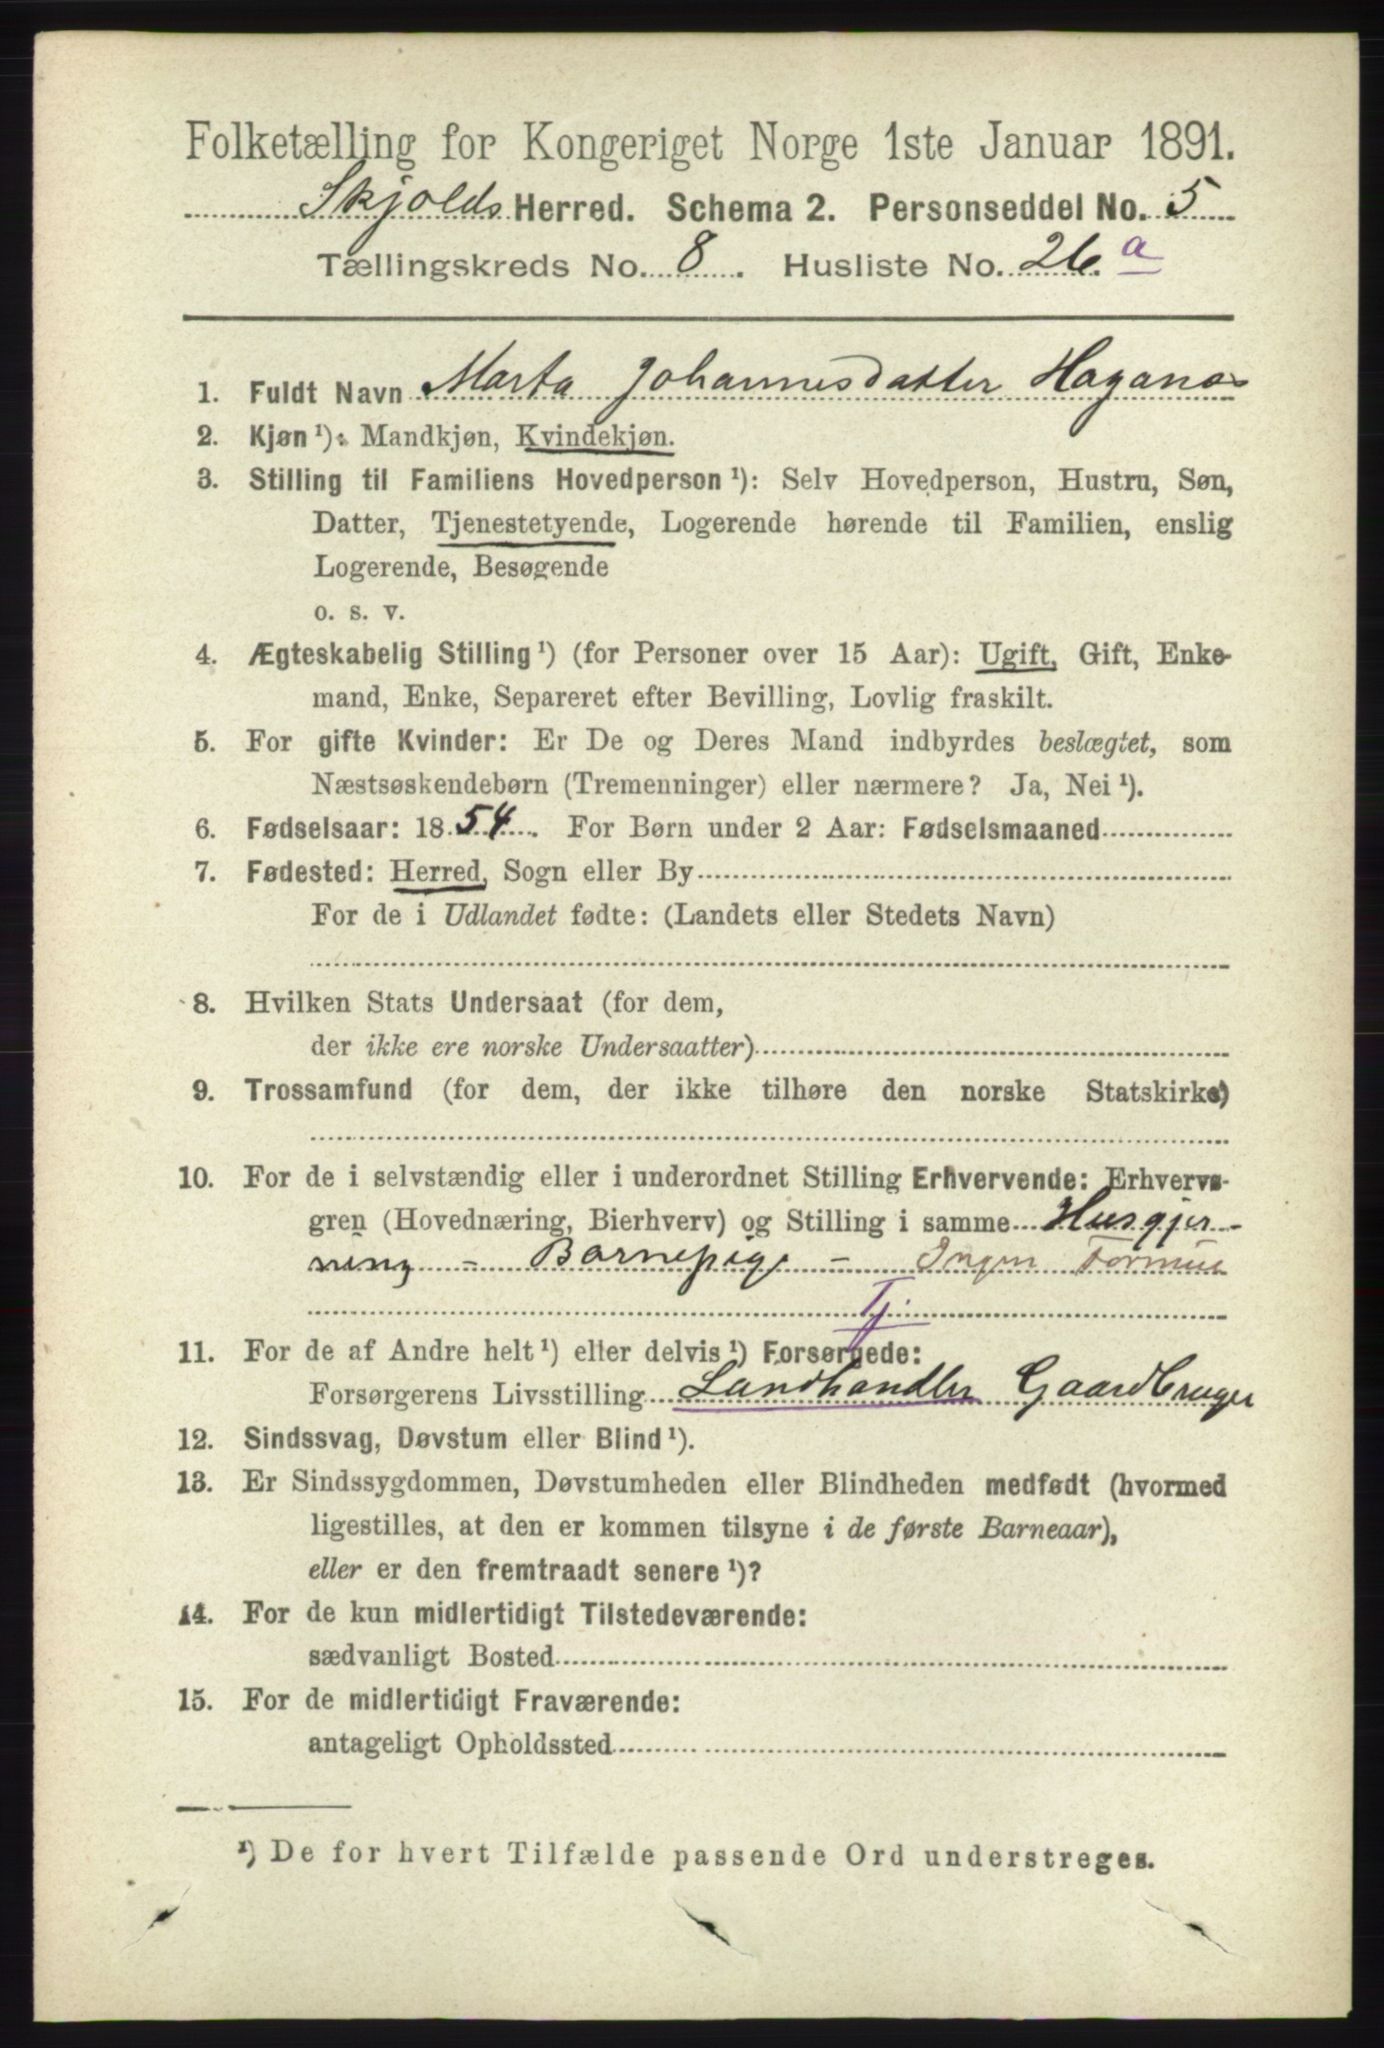 Folketælling for Kongeriget Norge 1ste Januar 1891.
Skjolds Herred. Schema 2. Personseddel No. 5
Tællingskreds No. 8. Husliste No. 26 a
1. Fuldt Navn Marta Johannesdatter Haganæs
2. Kjøn ¹): Mandkjøn, Kvindekjøn.
3. Stilling til Familiens Hovedperson ¹): Selv Hovedperson, Hustru, Søn,
Datter, Tjenestetyende, Logerende hørende til Familien, enslig
Logerende, Besøgende
o. s. v.
4. Ægteskabelig Stilling ¹) (for Personer over 15 Aar): Ugift, Gift, Enke-
mand, Enke, Separeret efter Bevilling, Lovlig fraskilt.
5. For gifte Kvinder: Er De og Deres Mand indbyrdes beslægtet, som
Næstsøskendebørn (Tremenninger) eller nærmere? Ja, Nei ¹).
6. Fødselsaar: 1854. For Børn under 2 Aar: Fødselsmaaned
7. Fødested: Herred, Sogn eller By
For de i Udlandet fødte: (Landets eller Stedets Navn)
8. Hvilken Stats Undersaat (for dem,
der ikke ere norske Undersaatter)
9. Trossamfund (for dem, der ikke tilhøre den norske Statskirke)
10. For de i selvstændig eller i underordnet Stilling Erhvervende: Erhvervs-
gren (Hovednæring, Bierhverv) og Stilling i samme Husgjer-
ning - Barnepige - Ingen Formue
Tj.
11. For de af Andre helt ¹) eller delvis ¹) Forsørgede:
Forsørgerens Livsstilling Landhandler Gaardbruger
12. Sindssvag, Døvstum eller Blind ¹).
13. Er Sindssygdommen, Døvstumheden eller Blindheden medfødt (hvormed
ligestilles, at den er kommen tilsyne i de første Barneaar),
eller er den fremtraadt senere ¹)?
14. For de kun midlertidigt Tilstedeværende:
sædvanligt Bosted
15. For de midlertidigt Fraværende:
antageligt Opholdssted
¹) De for hvert Tilfælde passende Ord understreges.